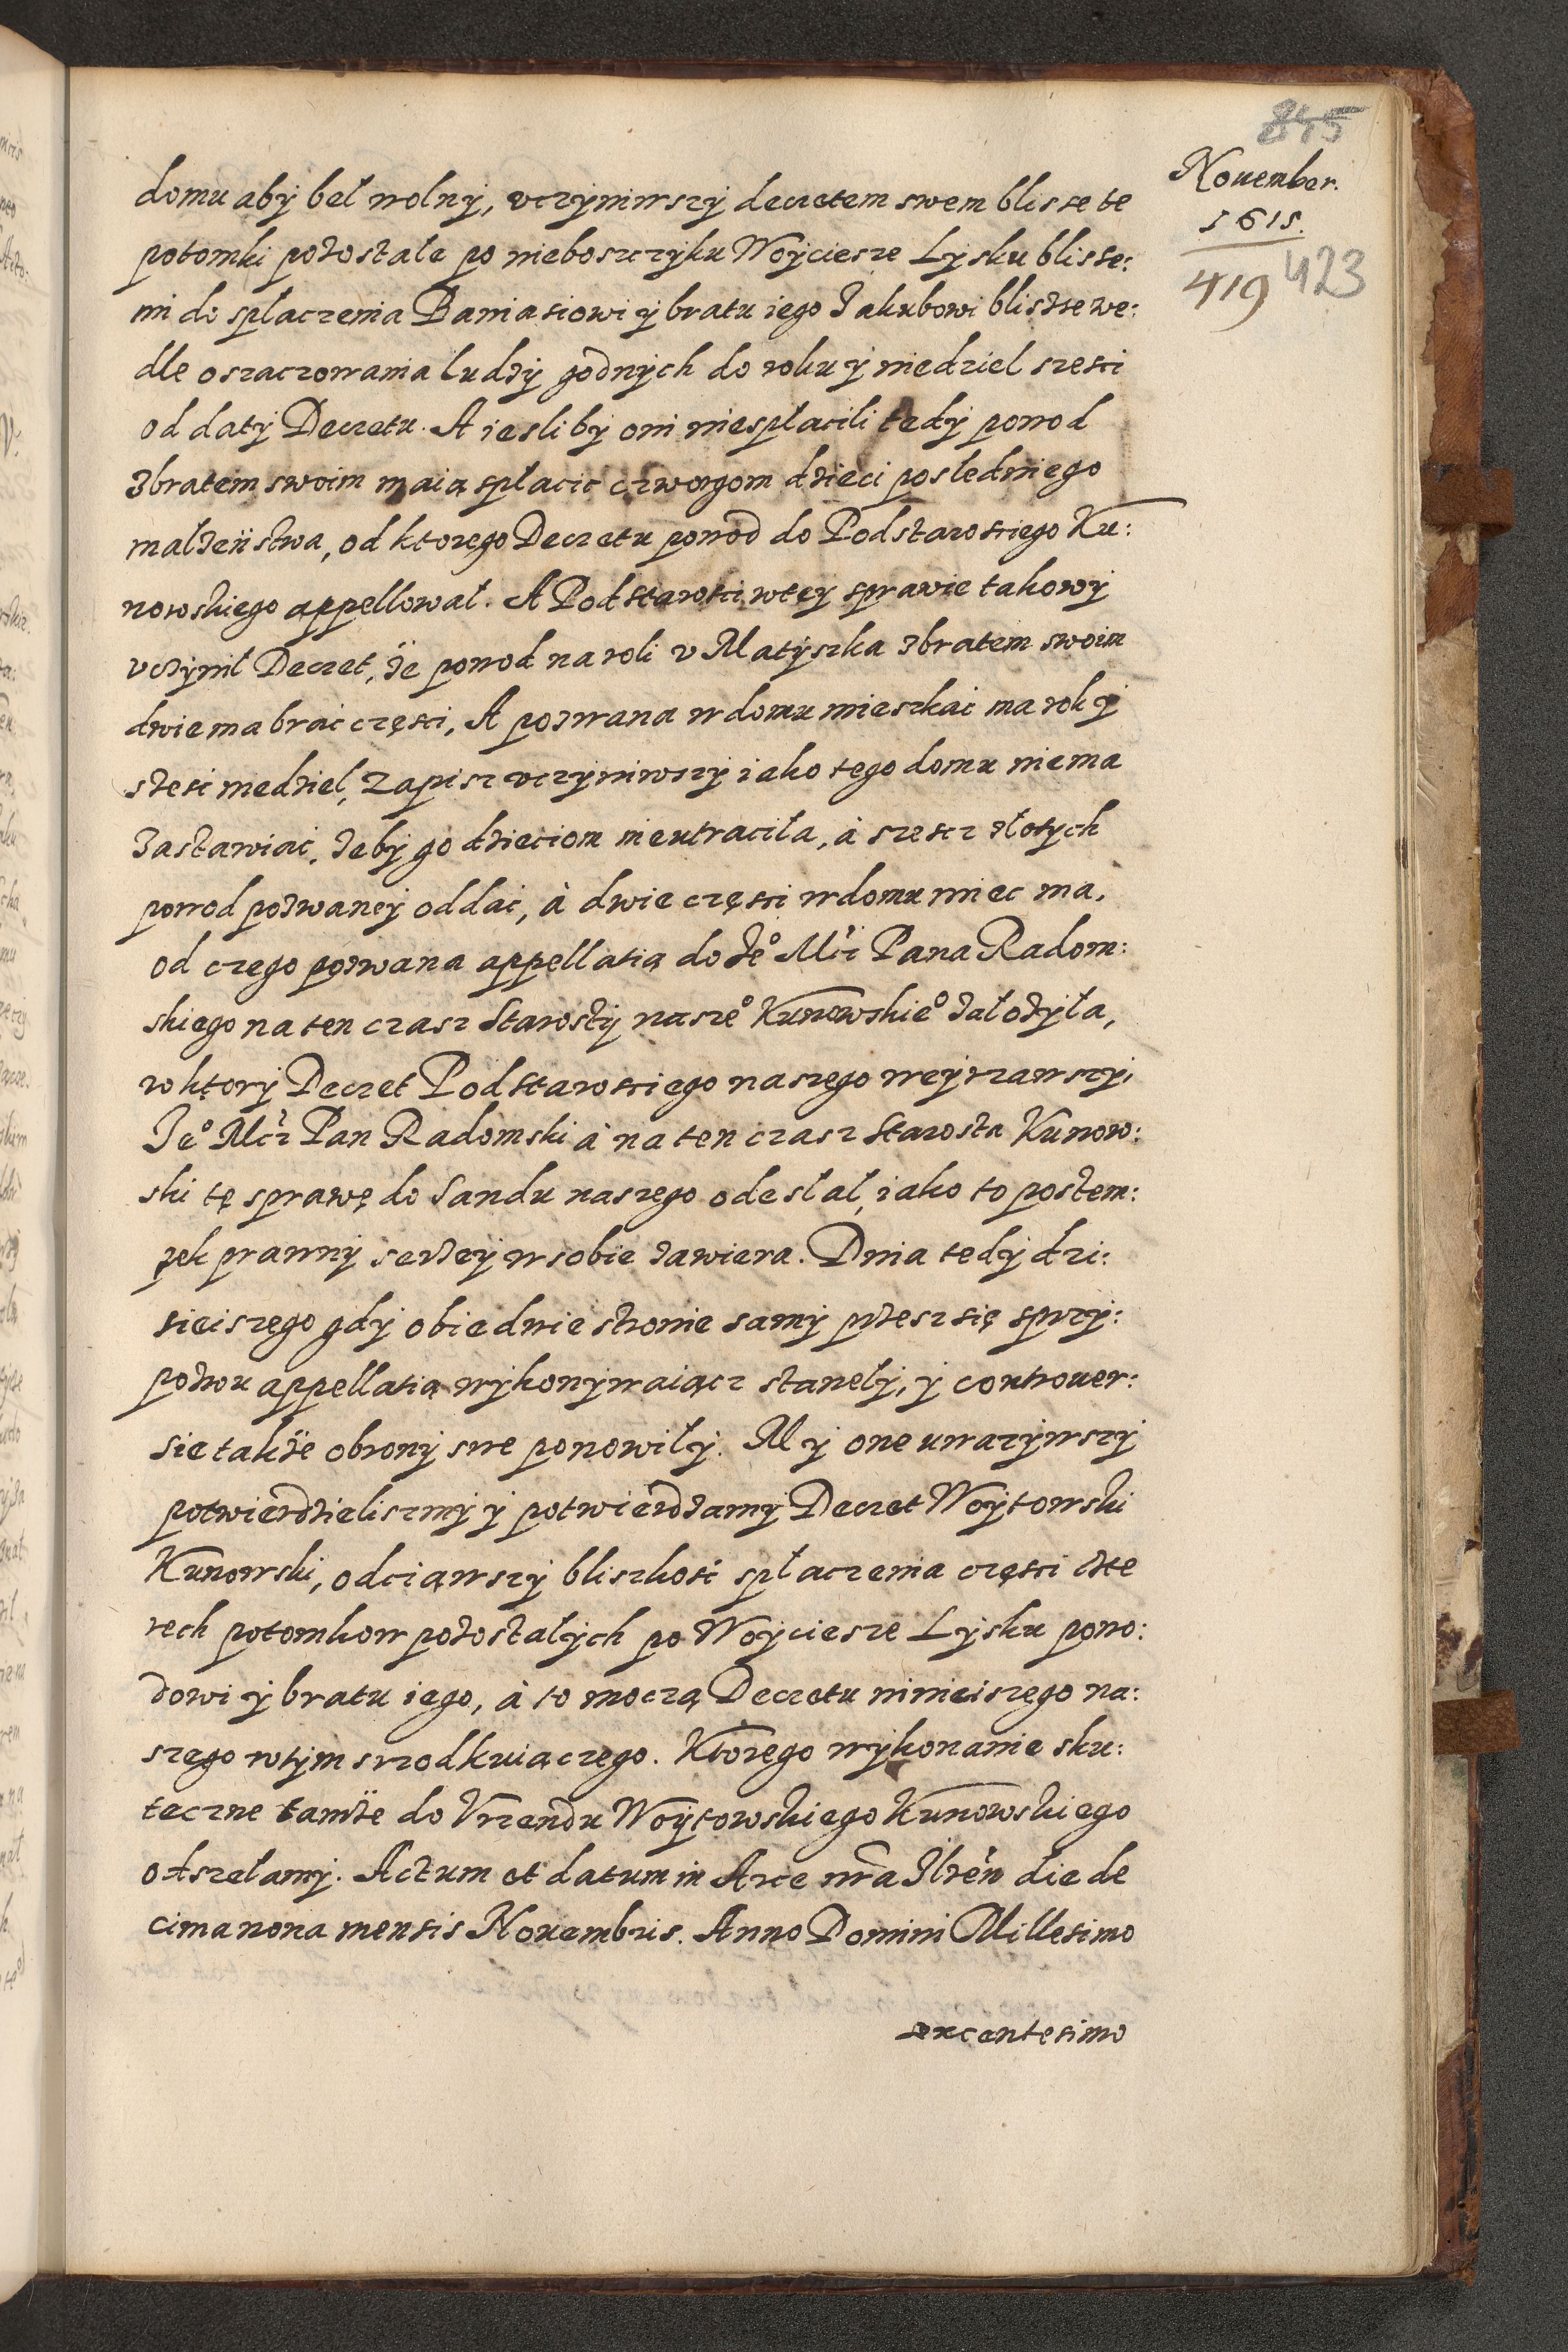 845
Nouember.
1615.
419 423
domu aby beł wolny, vczyniwszy decretem swem blisse te
potomki pozostałe po nieboszczyku Woyciesze Lysku blisse:
mi do spłaczenia Baniasiowi y bratu iego Jakubowi blisze we:
dle oszaczowania ludzy godnych do roku y niedziel szesci
od daty Decretu. A iesliby oni niespłacili tedy powod
zbratem swoim maią spłacic czworgom dzieci posledniego
małżeństwa, od ktorego Decretu powod do Podstarosciego Ku:
nowskiego appellował. A Podstarosci wtey sprawie takowy
vczynił Decret, że powod na roli v Matyszka zbratem swoim
dwie ma brać części, A pozwana w domu mieszkać ma rok y
szesc niedziel, zapisz vczyniwszy iako tego domu niema
zastawiać, żeby go dzieciom nieutraciła, à szescz złotych
powod pozwaney oddać, à dwie części wdomu miec ma.
od czego pozwana appellatią do Jeº Mći Pana Radom:
skiego na ten czasz Starosty naszeº Kunowskieº założyła,
w ktory Decret Podstarosciego naszego weyzrawszy,
Jeº Mćz Pan Radomski à na ten czasz Starosta Kunow:
ski tę sprawę do Sandu naszego odesłał, iako to postem:
pek prawny serzey wsobie zawiera. Dnia tedy dzi:
sieiszego gdy obiedwie stronie samy przesz się sprzy:
pozwu appellatią wykonywaiącz stanęły, y controuer:
sie także obrony swe ponowiły. My one uwazywszy
potwierdzieliszmy y potwierdzamy Decret Woytowski
Kunowski, odciąwszy bliszkość spłaczenia części czte
rech potomkow pozostałych po Woyciesze Lysku powo:
dowi y bratu iego, à to moczą Decretu ninieiszego na:
szego wtym srzodkuiączego. Ktorego wykonanie sku:
teczne tamże do Vrzendu Woytowskiego Kunowskiego
odszełamy. Actum et datum in Arce nr̃a Jlżeń die de
cima nona mensis Nouembris. Anno Domini Millesimo
sexcentesimo